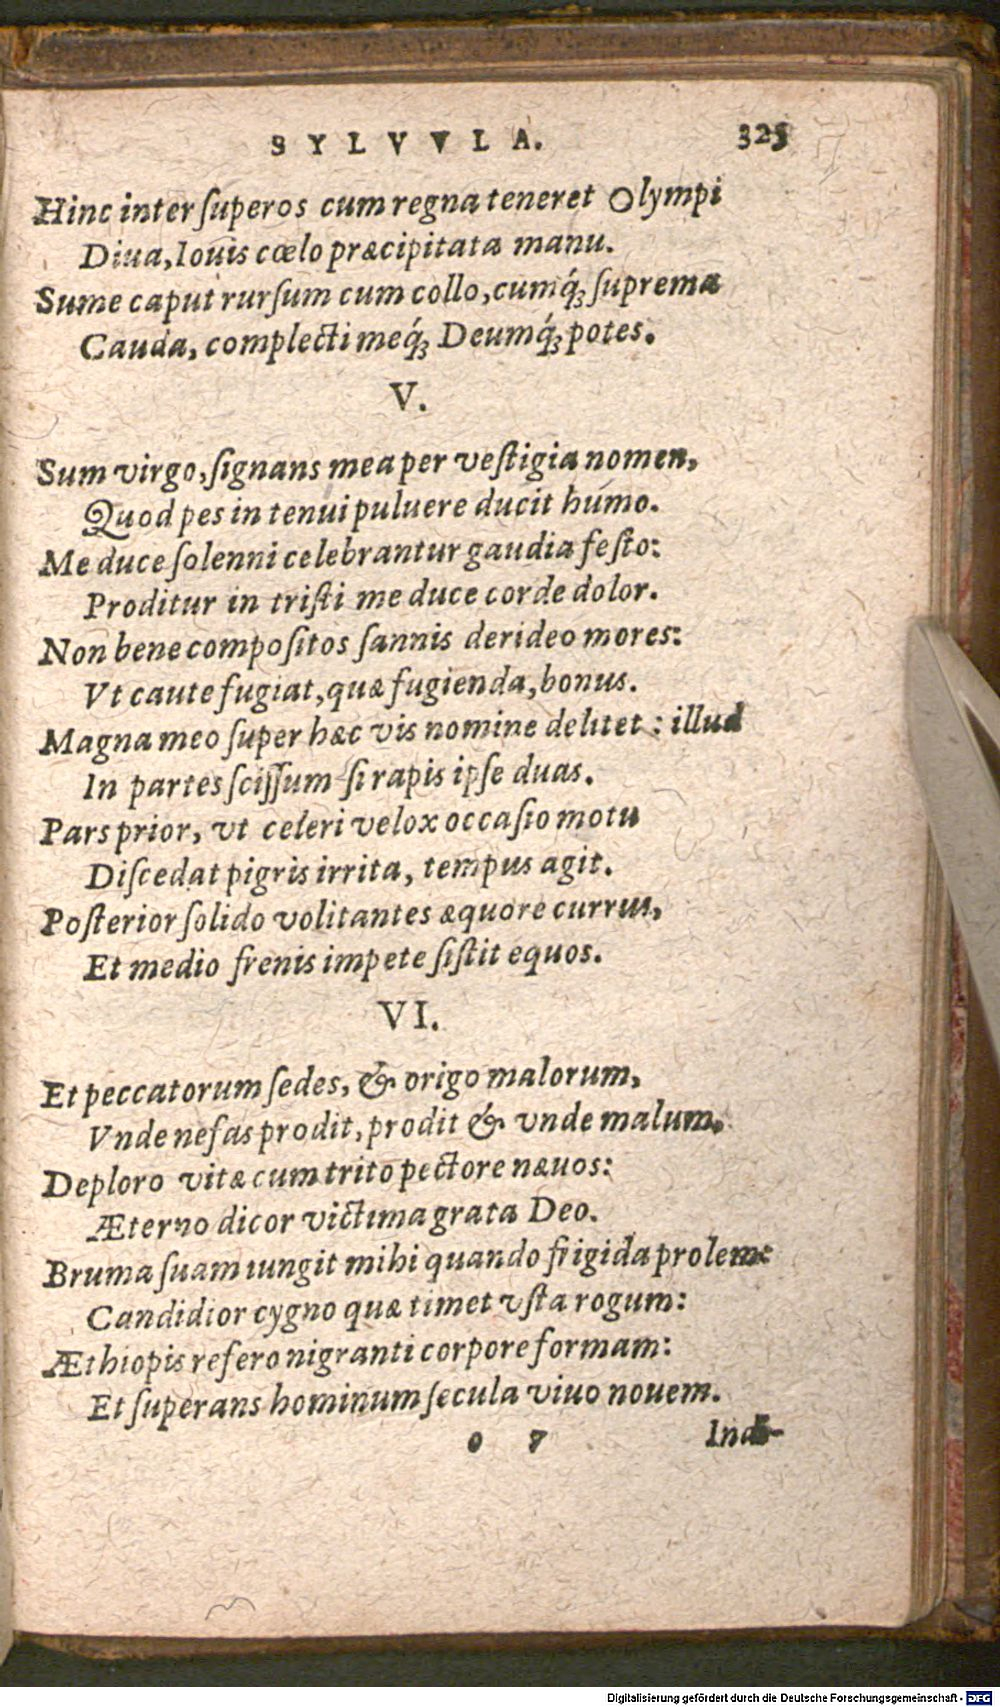 SYLVVLA. 325
Hinc inter ſuperos cum regna teneret Olympi
Diua, Iouis cœlo præcipitata manu.
Sume caput rurſum cum collo, cumq́ꝫ ſuprema
Cauda, complecti meq́ꝫ Deumq́ꝫ potes.
V.
Sum virgo, ſignans mea per veſtigia nomen,
Quod pes in tenui puluere ducit humo.
Me duce ſolenni celebrantur gaudia feſto:
Proditur in triſti me duce corde dolor.
Non bene compoſitos ſannis derideo mores:
Vt caute fugiat, quæ fugienda, bonus.
Magna meo ſuper hæc vis nomine delitet: illud
In partes ſciſſum ſi rapis ipſe duas.
Pars prior, vt celeri velox occaſio motu
Diſcedat pigris irrita, tempus agit.
Poſterior ſolido volitantes æquore currus,
Et medio frenis impete ſiſtit equos.
VI.
Et peccatorum ſedes, & origo malorum,
Vnde nefas prodit, prodit & vnde malum.
Deploro vitæ cum trito pectore næuos:
Æterno dicor victima grata Deo.
Bruma ſuam iungit mihi quando frigida prolem:
Candidior cygno quæ timet vſta rogum:
Æthiopis refero nigranti corpore formam:
Et ſuperans hominum ſecula viuo nouem.
o 7
Digitalisierung gefördert durch die Deutsche Forschungsgemeinschaft - DFG